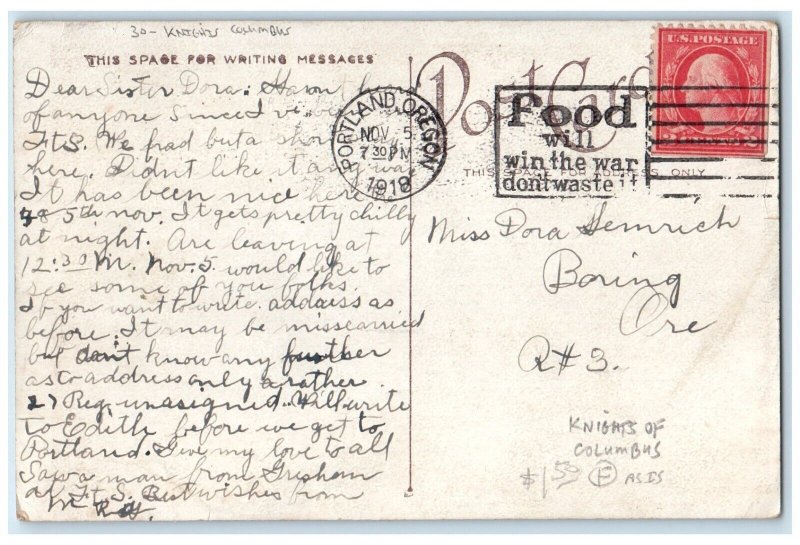 30- KNIGHTS COLUMBUS
THIS SPACE FOR WRITING MESSAGES
Post Card
Dear Sister Dora. Havnt hear
of anyone since I've been
Ft S. We had but a short
here. Didnt like it any way
It has been nice here
5th nov. It gets pretty chilly
at night. Are leaving at
12:30 M. Nov. 5. would like to
see some of you folks.
If you want to write. address as
before. It may be misscarried
but don't know any further
as to address only a rather.
27 Reg. unasigned. Will write
to Edith before we get to
Portland. Give my love to all
Saw a man from Gresham
at Ft. S. Best wishes from
Roy.
PORTLAND, OREGON
NOV 5
7 30 PM
1918
Food
will
win the war
dont waste it
U.S. POSTAGE
2 CENTS 2
THIS SPACE FOR ADDRESS ONLY
Miss Dora Hemrich
Boring
Ore
R#3.
KNIGHTS OF
COLUMBUS
$150 F AS IS